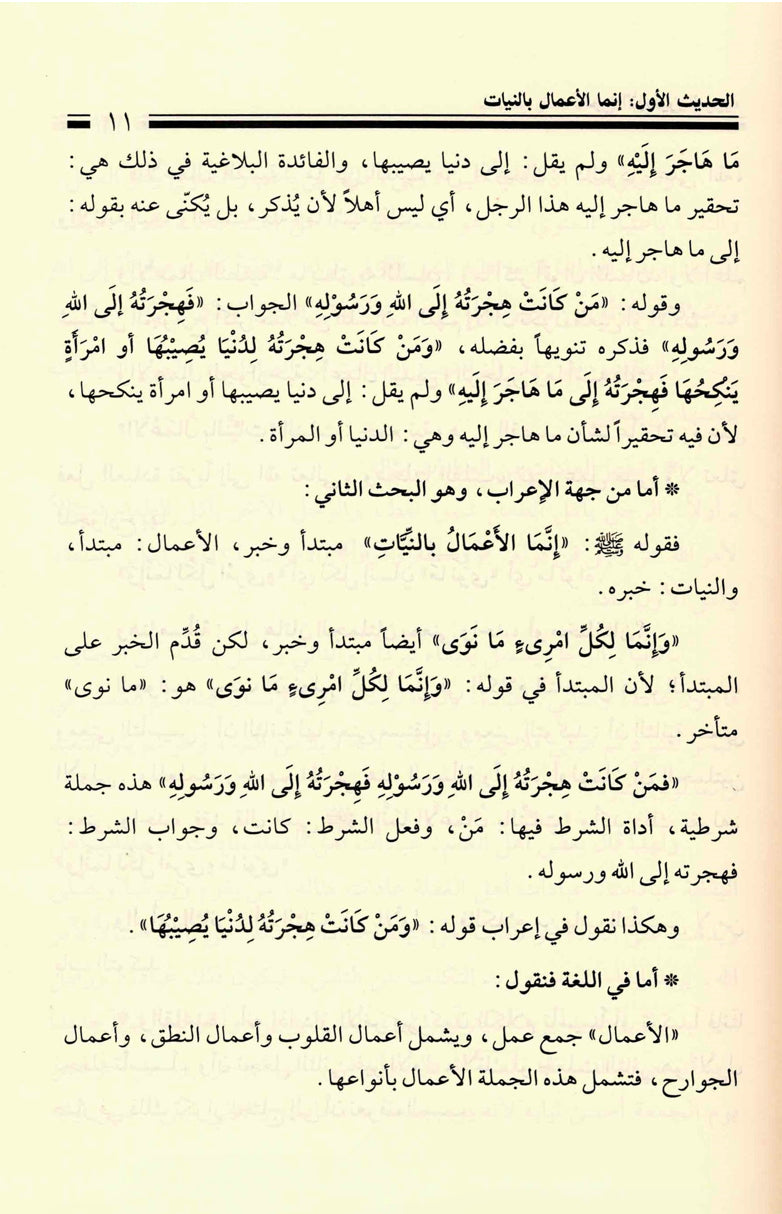 الحديث الأول: إنما الأعمال بالنيات
١١
مَا هَاجَرَ إِلَيْهِ» ولم يقل: إلى دنيا يصيبها، والفائدة البلاغية في ذلك هي:
تحقير ما هاجر إليه هذا الرجل، أي ليس أهلاً لأن يُذكر، بل يُكنّى عنه بقوله:
إلى ما هاجر إليه.
وقوله: «مَن كَانَتْ هِجْرَتُهُ إِلَى اللهِ وَرَسُوْلِهِ» الجواب: «فَهِجْرَتُهُ إلَى اللهِ
وَرَسُولِهِ» فذكره تنويهاً بفضله، «وَمَنْ كَانَتْ هِجْرَتُهُ لِدُنْيَا يُصِيْبُهَا أو امْرَأَةٍ
يَنْكِحُهَا فَهِجْرَتُهُ إِلَى مَا هَاجَرَ إِلَيهِ» ولم يقل: إلى دنيا يصيبها أو امرأة ينكحها،
لأن فيه تحقيراً لشأن ما هاجر إليه وهي: الدنيا أو المرأة.
* أما من جهة الإعراب، وهو البحث الثاني:
فقوله ﷺ: «إِنَّمَا الأَعْمَالُ بالنِيَّاتِ» مبتدأ وخبر، الأعمال: مبتدأ،
والنيات: خبره.
«وَإِنَّمَا لِكُلِّ امْرِىءٍ مَا نَوَى» أيضاً مبتدأ وخبر، لكن قُدِّم الخبر على
المبتدأ؛ لأن المبتدأ في قوله: «وَإِنَّمَا لِكُلِّ امْرِىءٍ مَا نوَى» هو: «ما نوى»
متأخر.
«فمَنْ كَانَتْ هِجْرَتُهُ إِلَى اللهِ وَرَسُوْلِهِ فَهِجْرَتُهُ إِلَى اللهِ وَرَسُولِهِ» هذه جملة
شرطية، أداة الشرط فيها: مَنْ، وفعل الشرط: كانت، وجواب الشرط:
فهجرته إلى الله ورسوله.
وهكذا نقول في إعراب قوله: «وَمَنْ كَانَتْ هِجْرَتُهُ لِدُنْيَا يُصِيْبُهَا».
* أما في اللغة فنقول:
«الأعمال» جمع عمل، ويشمل أعمال القلوب وأعمال النطق، وأعمال
الجوارح، فتشمل هذه الجملة الأعمال بأنواعها.